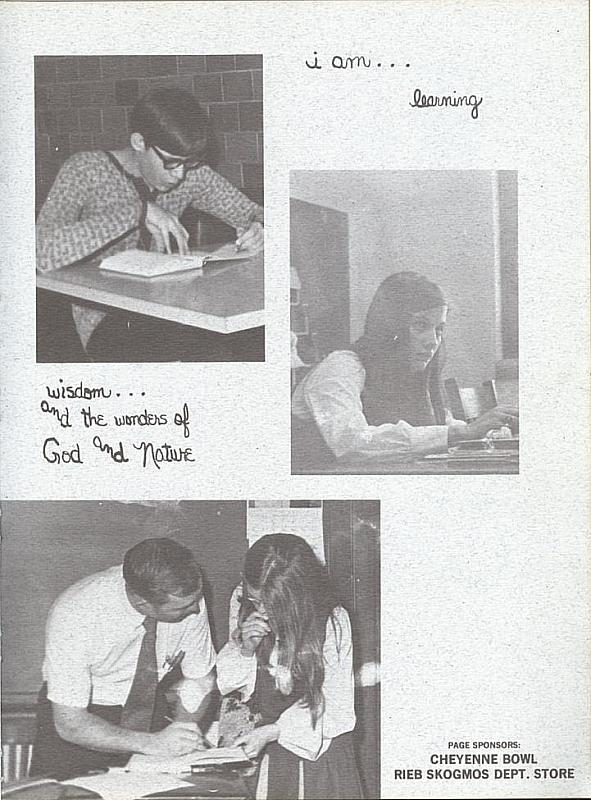 i am...
learning
wisdom...
and the wonders of
God and Nature
PAGE SPONSORS:
CHEYENNE BOWL
RIEB SKOGMOS DEPT. STORE